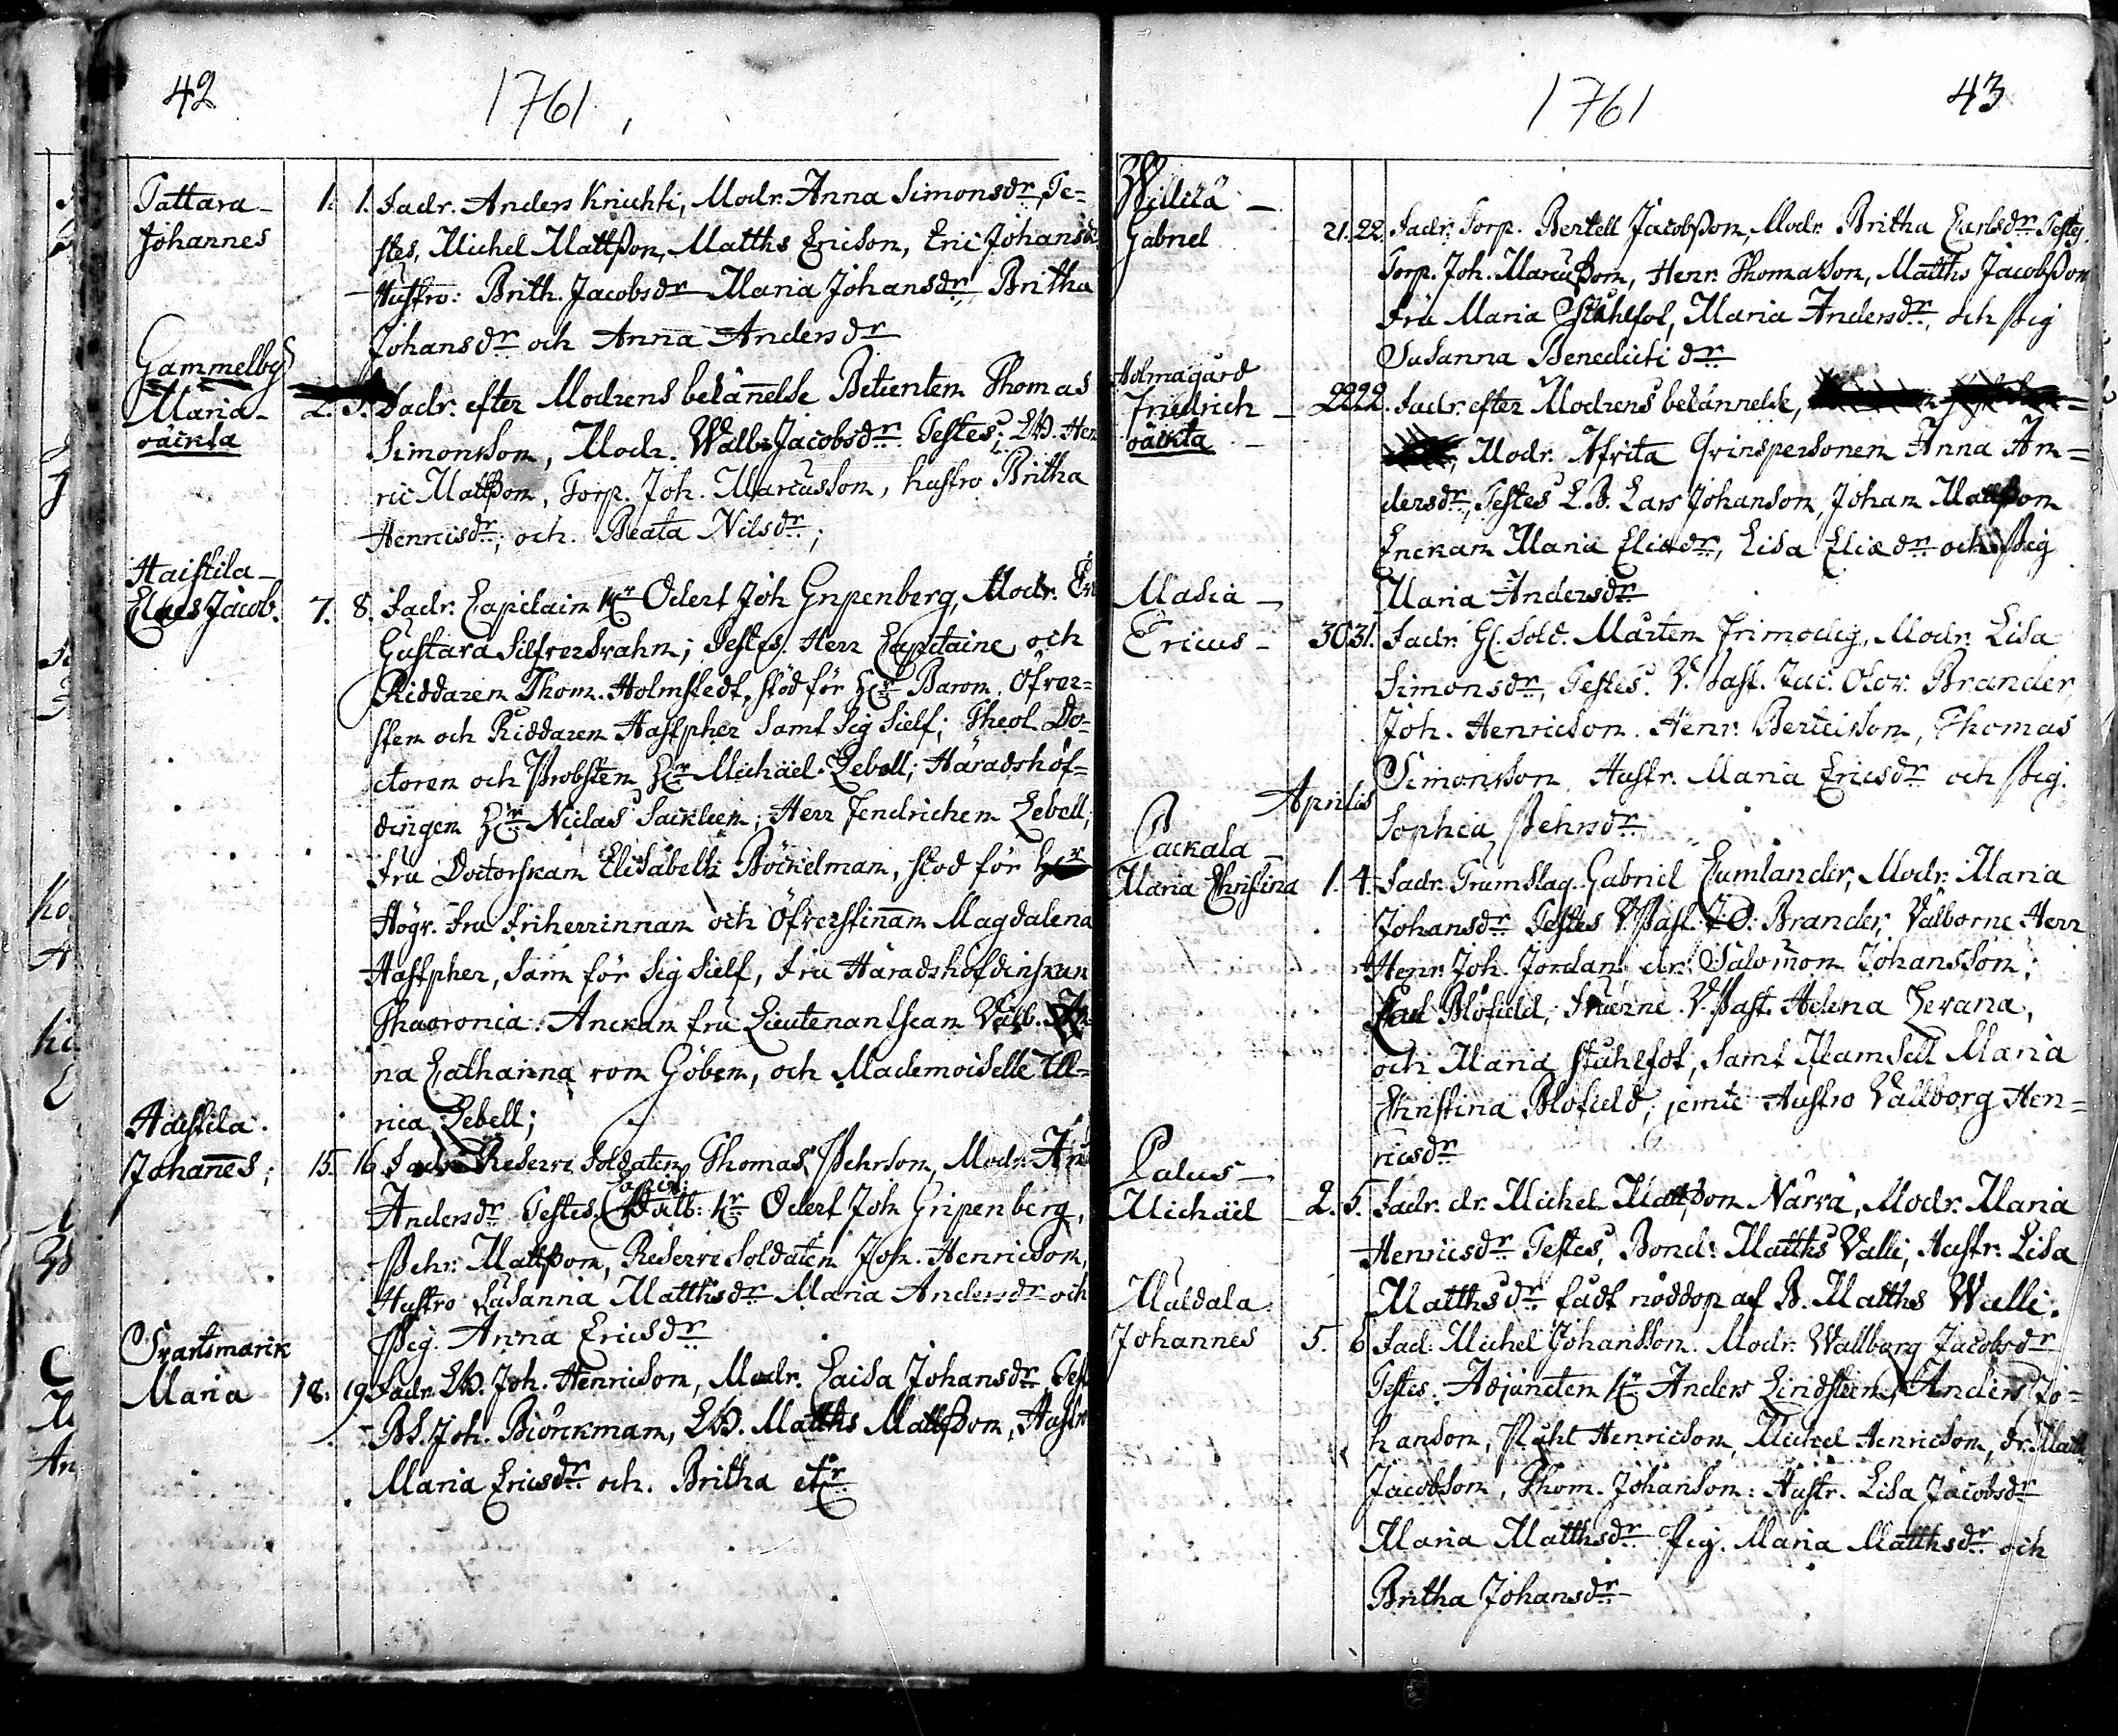 42
1761
Tattara
Johannes
1. 1. Fadr. Anders Knichti, Modr. Anna Simonsdr, Te-
stes, Michel Mattsson, Matths Ericson, Eric Johans
Hustro: Brith. Jacobsdr Maria Johansdr, Britha
Johansdr och Anna Andersdr
Gammelby
Maria
oäckta
2. 3. Fadr. efter Modrens bekännelse Betienten Thomas
Simonsson, Modr. Walb. Jacobsdr. Testes; LB. Hen
ric Mattsson, Torp. Joh. Marcusson, hustro Britha
Henricsdr; och Beata Nilsdr;
Haistila
Claes Jacob.
7. 8. Fadr. Capitain Hr Odert Joh Gripenberg, Modr.
Gustava Silfversvahn; Testes. Herr Capitaine och
Riddaren Thom. Holmstedt, stod för Hr Baron. Öfver-
sten och Riddaren Hastpher samt sig sielf; Theol. Do-
ctoren och Probsten Hr Michaël Lebell; Häradshöf-
dingen Hr Niclas Sacklein; Herr Fendrichen Lebell;
Fru Doctorskan Elisabeth Böckelman, stod för
Högv. Fru Friherrinnan och Öfverstinnan Magdalena
Hastpher, sam för sig sielf, Fru Häradshöfdinskan
Thavronia. Anckan fru Lieutenantskan Välb.
na Catharina von Göben, och Mademoiselle Ul-
rica Lebell;
Haistila.
Johannes;
15. 16 Fadr. Reserve Soldaten Thomas Pehrson, Modr. An
Andersdr Testes. Capit: Välb: Hr Odert Joh Gripenberg,
Pehr. Mattsson, Reserve Soldaten Joh. Henricson,
Hustro Susanna Matthsdr Maria Andersdr och
Pig. Anna Ericsdr
Svartsmarck
Maria
18. 19 Fadr. LB. Joh. Henricson, Modr. Caisa Johansdr Test
BS. Joh. Biörckman, LB. Matths Mattsson, Hustr
Maria Ericsdr och Britha
1761
43
Willilä
Gabriel
21. 22. Fadr. Torp. Bertell Jacobsson, Modr. Britha Carlsdr Testes.
Torp. Joh. Marcusson, Henr. Thomasson, Matths Jacobsson
Fru Maria Ståhlfot, Maria Andersdr, och Pig
Susanna Benedictidr
Holmagård
Friedrich
oäckta
22 22. Fadr. efter Modrens bekännelse,
Modr. Afvita Qvinspersonen Anna An-
dersdr, Testes L.B. Lars Johanson, Johan Mattsson
Enckan Maria Eliædr, Lisa Eliædr och Pig
Maria Andersdr
Masia
Ericus
30 31. Fadr. Gl. Sold. Mårten Frimodig, Modr. Lisa
Simonsdr, Testes. V. Past. Jac. Olov. Brander,
Joh. Henricson. Henr. Bertilsson, Thomas
Simonsson Hustr. Maria Ericsdr och Pig.
Sophia Pehrsdr
Aprilis
Packala
Maria Christina
1. 4. Fadr. Trumslag. Gabriel Cumlander, Modr. Maria
Johansdr Testes V. Past. J.O. Brander, Välborne Herr
Henr. Joh. Jordan dr. Salomon Johansson;
Carl Blofield, Fruerne V. Past. Helena Levana,
och Maria Ståhlfot, samt Mamsell Maria
Christina Blofield, jemte Hustro Vallborg Hen-
ricsdr
Palus
Michäel
2. 5. Fadr. dr. Michel Mattsson Närvä, Modr. Maria
Henricsdr Testes, Bond: Matths Valli, Hustr. Lisa
Matthsdr fådt nöddop af B. Matths Walli.
Muldala
Johannes
5. 6 Fad: Michel Johansson. Modr. Wallborg Jacobsdr
Testes. Adjuncten Hr Anders Lindsteen, Anders Jo-
hanson, Påhl Henricson, Michel Henricson, dr. Math
Jacobson, Thom. Johanson: Hustr. Lisa Jacobsdr
Maria Matthsdr Pig. Maria Matthsdr och
Britha Johansdr